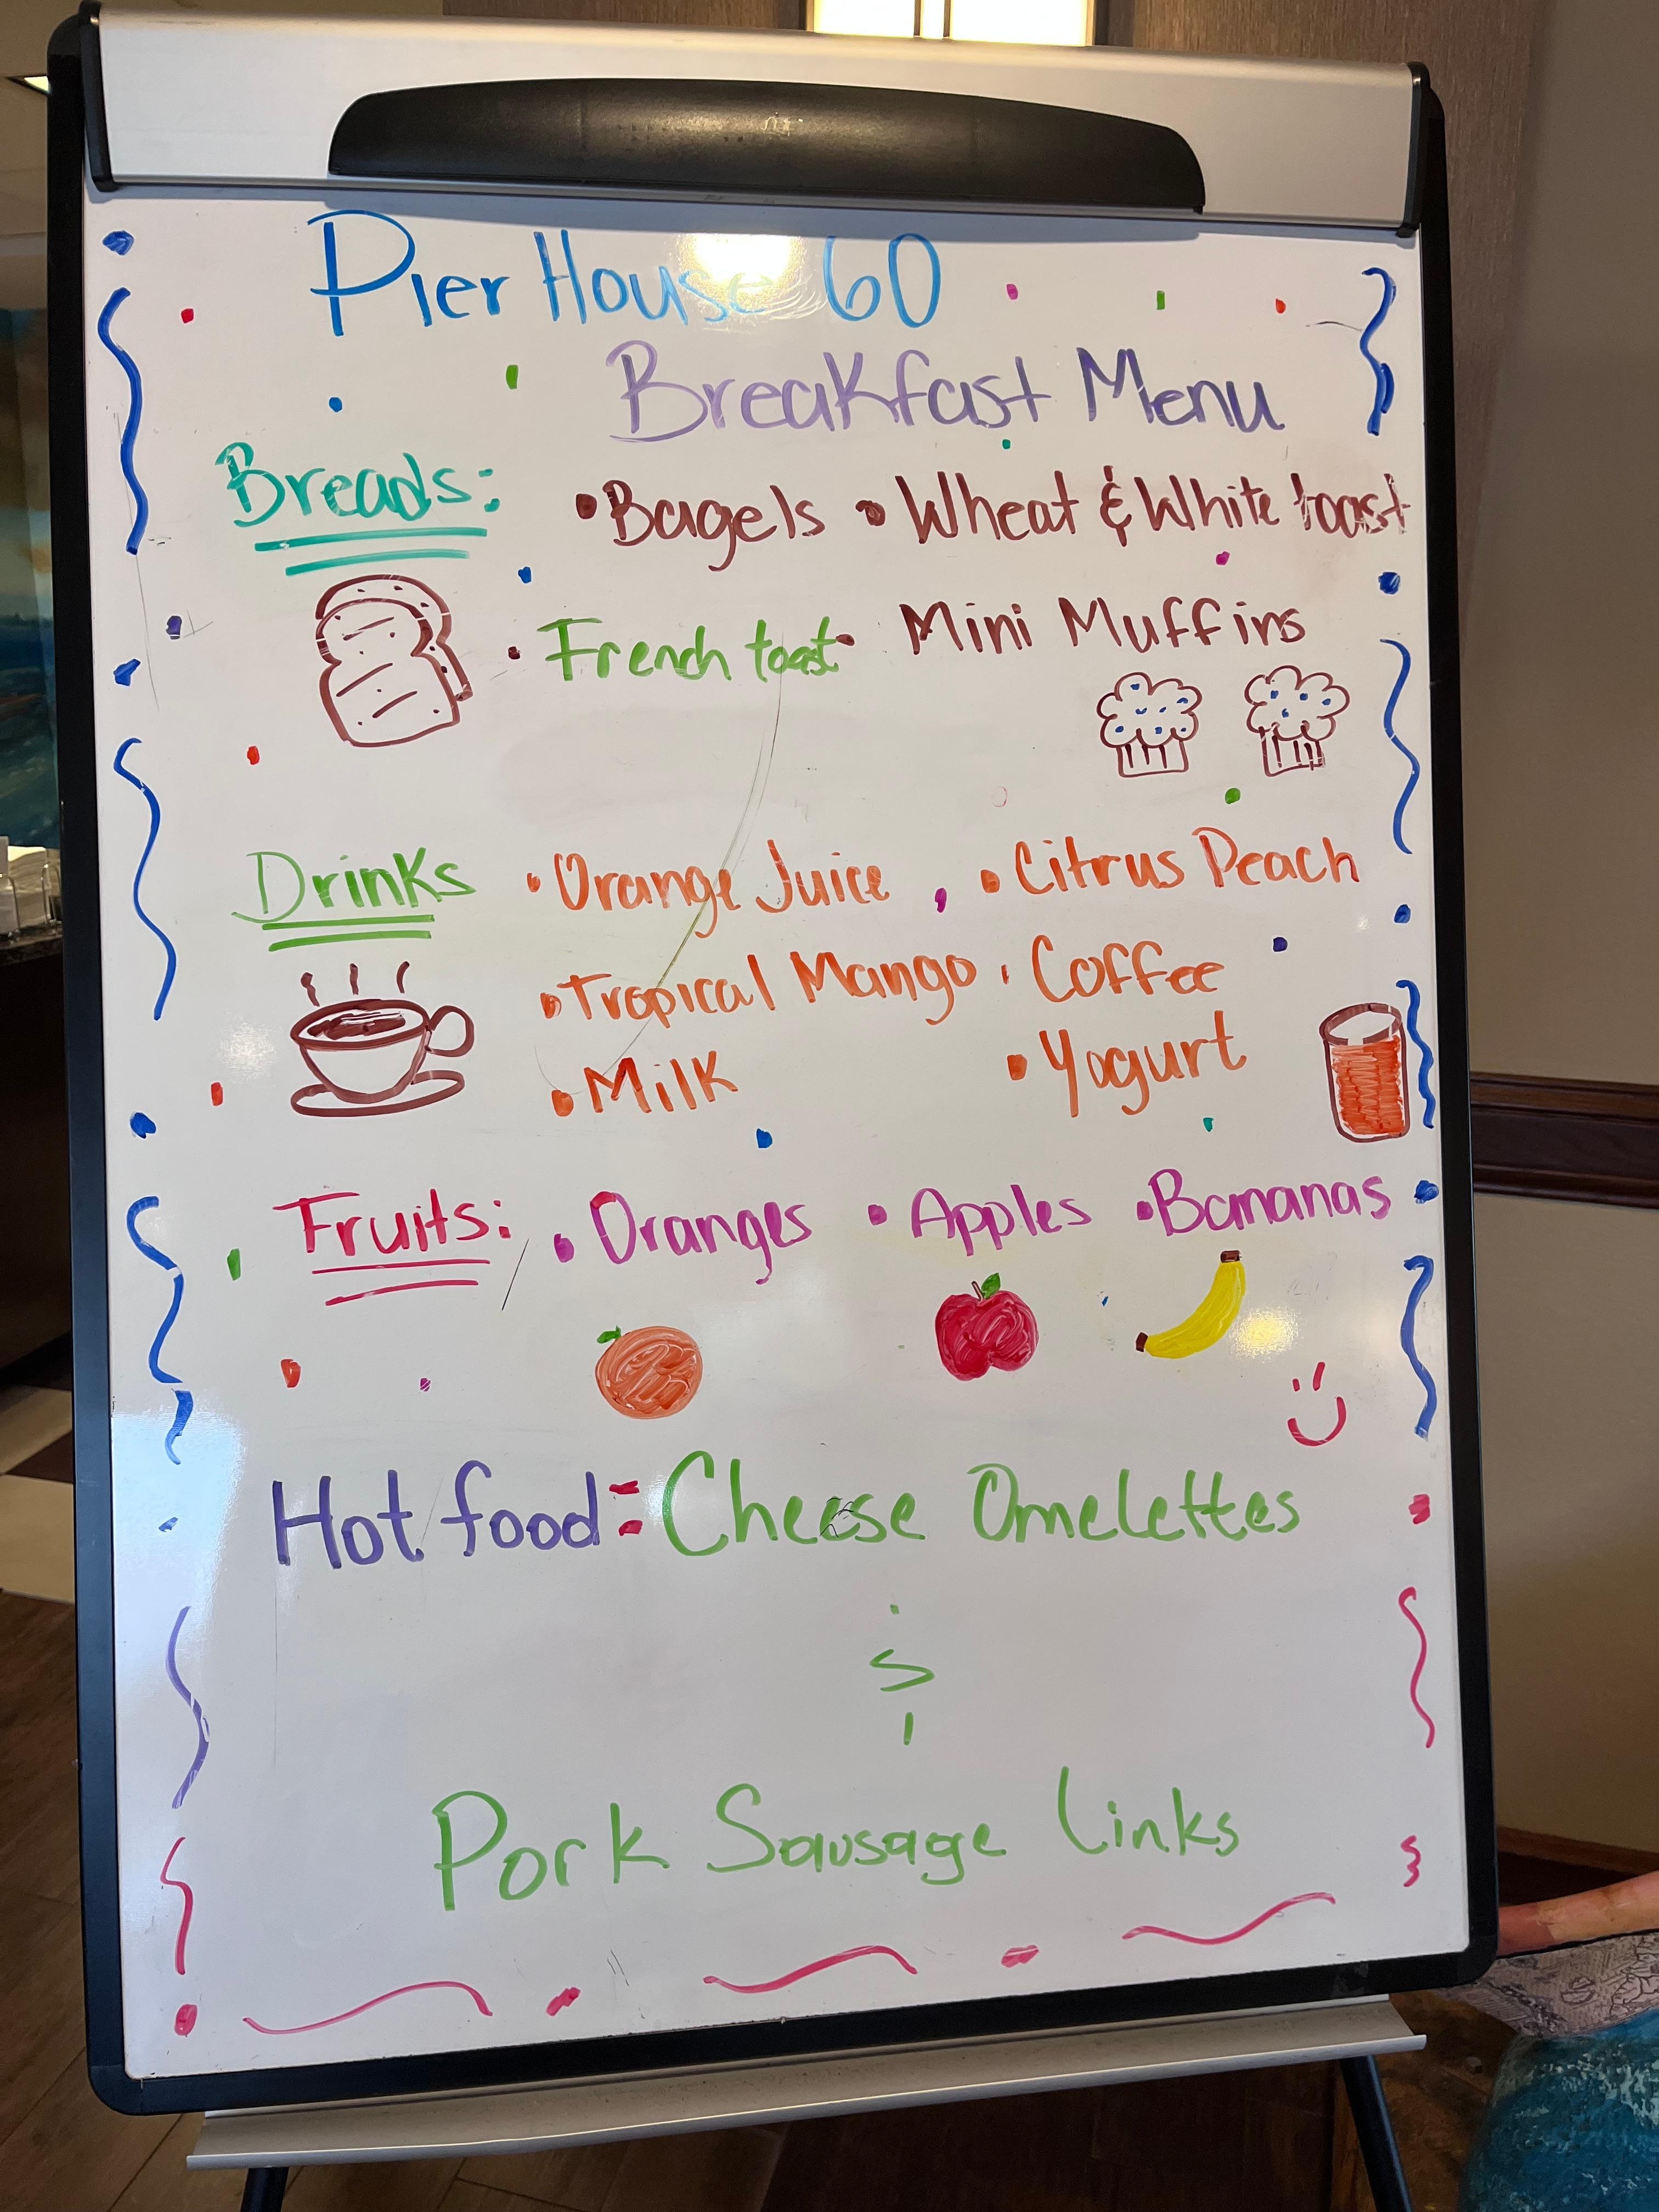 Pier House 60
Breakfast Menu
Breads: • Bagels • Wheat & White toast
• French toast • Mini Muffins
Drinks • Orange Juice • Citrus Peach
• Tropical Mango • Coffee
• Milk • Yogurt
Fruits: • Oranges • Apples • Bananas
Hot food: Cheese Omelettes
Pork Sausage Links